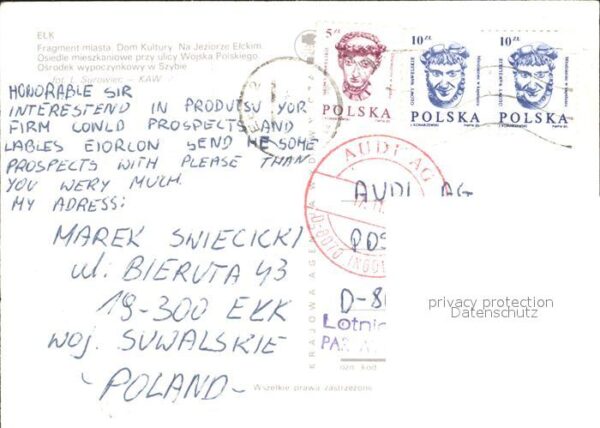 EŁK
Fragment miasta. Dom Kultury. Na Jeziorze Ełckim.
Osiedle mieszkaniowe przy ulicy Wojska Polskiego.
Ośrodek wypoczynkowy w Szybie
fot. J. Surowiec - KAW
HONORABLE SIR
INTERESTEND IN PRODUTSU YOR
FIRM COWLD PROSPECTS AND
LABLES EIORLON SEND ME SOME
PROSPECTS WITH PLEASE THAN
YOU WERY MUCH.
MY ADRESS:
MAREK SWIECICKI
ul. BIERUTA 43
19-300 EŁK
WOJ. SUWALSKIE
- POLAND -
5 zł
POLSKA
10 zł
POLSKA
10 zł
POLSKA
AUDI AG
AUDI AG
POS
D-8
Lotni
PA
KRAJOWA AGEN
ozn. kod.
Wszelkie prawa zastrzeżone
privacy protection
Datenschutz